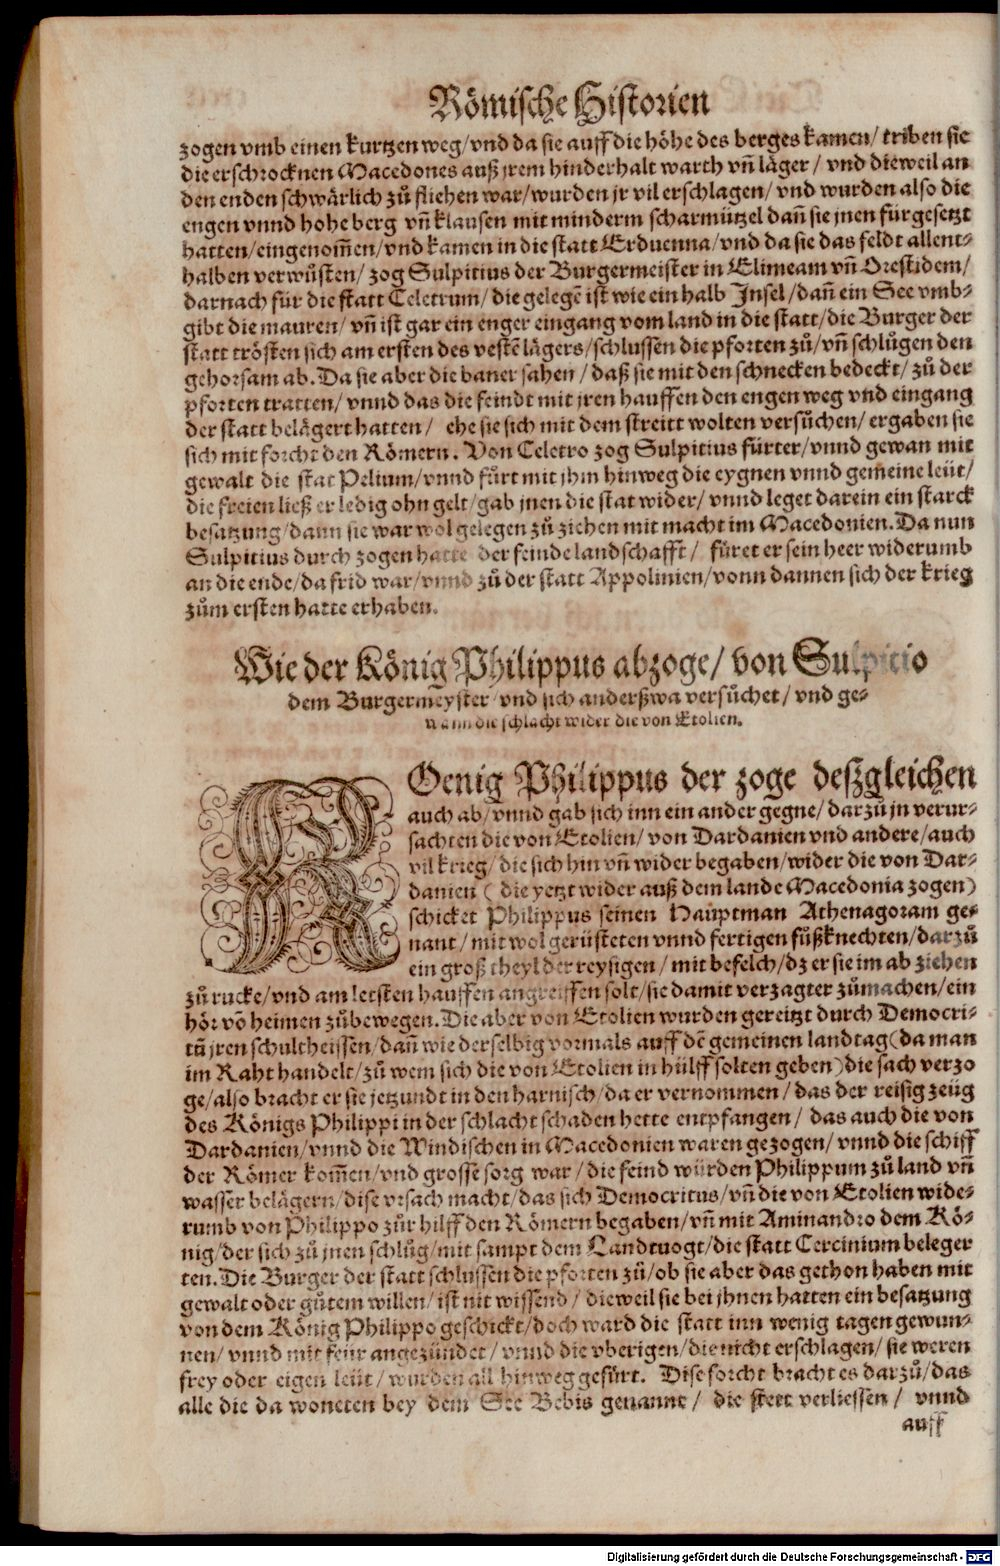 Römische Historien
zogen vmb einen kurtzen weg/ vnd da sie auff die höhe des berges kamen/ triben sie
die erschrocknen Macedones auß jrem hinderhalt warth vñ läger/ vnd dieweil an
den enden schwärlich zů fliehen war/ wurden jr vil erschlagen/ vnd wurden also die
engen vnnd hohe berg vñ klausen mit minderm scharmützel dañ sie jnen fürgesetzt
hatten/ eingenom̃en/ vnd kamen in die statt Erduenna/ vnd da sie das feldt allent⸗
halben verwůsten/ zog Sulpitius der Burgermeister in Elimeam vñ Orestidem/
darnach für die statt Celetrum/ die gelegẽ ist wie ein halb Insel/ dañ ein See vmb⸗
gibt die mauren/ vñ ist gar ein enger eingang vom land in die statt/ die Burger der
statt trösten sich am ersten des vestẽ lägers/ schlussen die pforten zů/ vñ schlůgen den
gehorsam ab. Da sie aber die baner sahen/ daß sie mit den schnecken bedeckt/ zů der
pforten tratten/ vnnd das die feindt mit jren hauffen den engen weg vnd eingang
der statt belägert hatten/ ehe sie sich mit dem streitt wolten versůchen/ ergaben sie
sich mit forcht den Römern. Von Celetro zog Sulpitius fürter/ vnnd gewan mit
gewalt die stat Pelium/ vnnd fůrt mit jhm hinweg die eygnen vnnd gemeine leüt/
die freien ließ er ledig ohn gelt/ gab jnen die stat wider/ vnnd leget darein ein starck
besatzung/ dann sie war wol gelegen zů ziehen mit macht im Macedonien. Da nun
Sulpitius durch zogen hatte der feinde landschafft/ füret er sein heer widerumb
an die ende/ da frid war/ vnnd zů der statt Appolinien/ vonn dannen sich der krieg
zům ersten hatte erhaben.
Wie der König Philippus abzoge/ von Sulpitio
dem Burgermeyster vnd sich anderßwa versůchet/ vnd ge⸗
wann die schlacht wider die von Etolien.
KOenig Philippus der zoge deszgleichen
auch ab/ vnnd gab sich inn ein ander gegne/ darzů jn verur⸗
sachten die von Etolien/ von Dardanien vnd andere/ auch
vil krieg/ die sich hin vñ wider begaben/ wider die von Dar⸗
danien ( die yetzt wider auß dem lande Macedonia zogen)
schicket Philippus seinen Hauptman Athenagoram ge⸗
nant/ mit wol gerüsteten vnnd fertigen fůßknechten/ darzů
ein groß theyl der reysigen/ mit befelch/ dz er sie im ab ziehen
zů rucke/ vnd am letsten hauffen angreiffen solt/ sie damit verzagter zůmachen/ ein
hör võ heimen zůbewegen. Die aber von Etolien wurden gereitzt durch Democri⸗
tũ jren schultheissen/ dañ wie derselbig vormals auff dẽ gemeinen landtag (da man
im Raht handelt/ zů wem sich die von Etolien in hülff solten geben) die sach verzo
ge/ also bracht er sie jetzundt in den harnisch/ da er vernommen/ das der reisig zeüg
des Königs Philippi in der schlacht schaden hette entpfangen/ das auch die von
Dardanien/ vnnd die Windischen in Macedonien waren gezogen/ vnnd die schiff
der Römer kom̃en/ vnd grosse sorg war/ die feind würden Philippum zů land vñ
wasser belägern/ dise vrsach macht/ das sich Democritus/ vñ die von Etolien wide⸗
rumb von Philippo zůr hilff den Römern begaben/ vñ mit Aminandro dem Kö⸗
nig/ der sich zů jnen schlůg/ mit sampt dem Landtuogt/ die statt Cercinium beleger
ten. Die Burger der statt schlussen die pforten zů/ ob sie aber das gethon haben mit
gewalt oder gůtem willen/ ist nit wissend/ dieweil sie bei jhnen hatten ein besatzung
von dem König Philippo geschickt/ doch ward die statt inn wenig tagen gewun⸗
nen/ vnnd mit feür angezündet/ vnnd die vberigen/ die nicht erschlagen/ sie weren
frey oder eigen leüt/ wurden all hinweg gefürt. Dise forcht bracht es darzů/ das
alle die da woneten bey dem See Bebis genannt/ die stett verliessen/ vnnd
auff
Digitalisierung gefördert durch die Deutsche Forschungsgemeinschaft - DFG